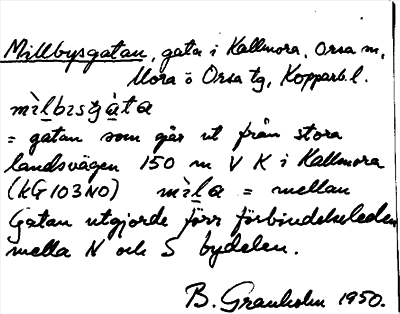 Millbysgatan, gata i Kallmora, Orsa sn,
Mora o Orsa tg, Kopparb. l.
mìlbɪsgàta
= gatan som går ut från stora
landsvägen 150 m V K i Kallmora
(KG 103 NO) mìla = mellan
Gatan utgjorde förr förbindelseleden
mella N och S bydelen.
B. Granholm 1950.